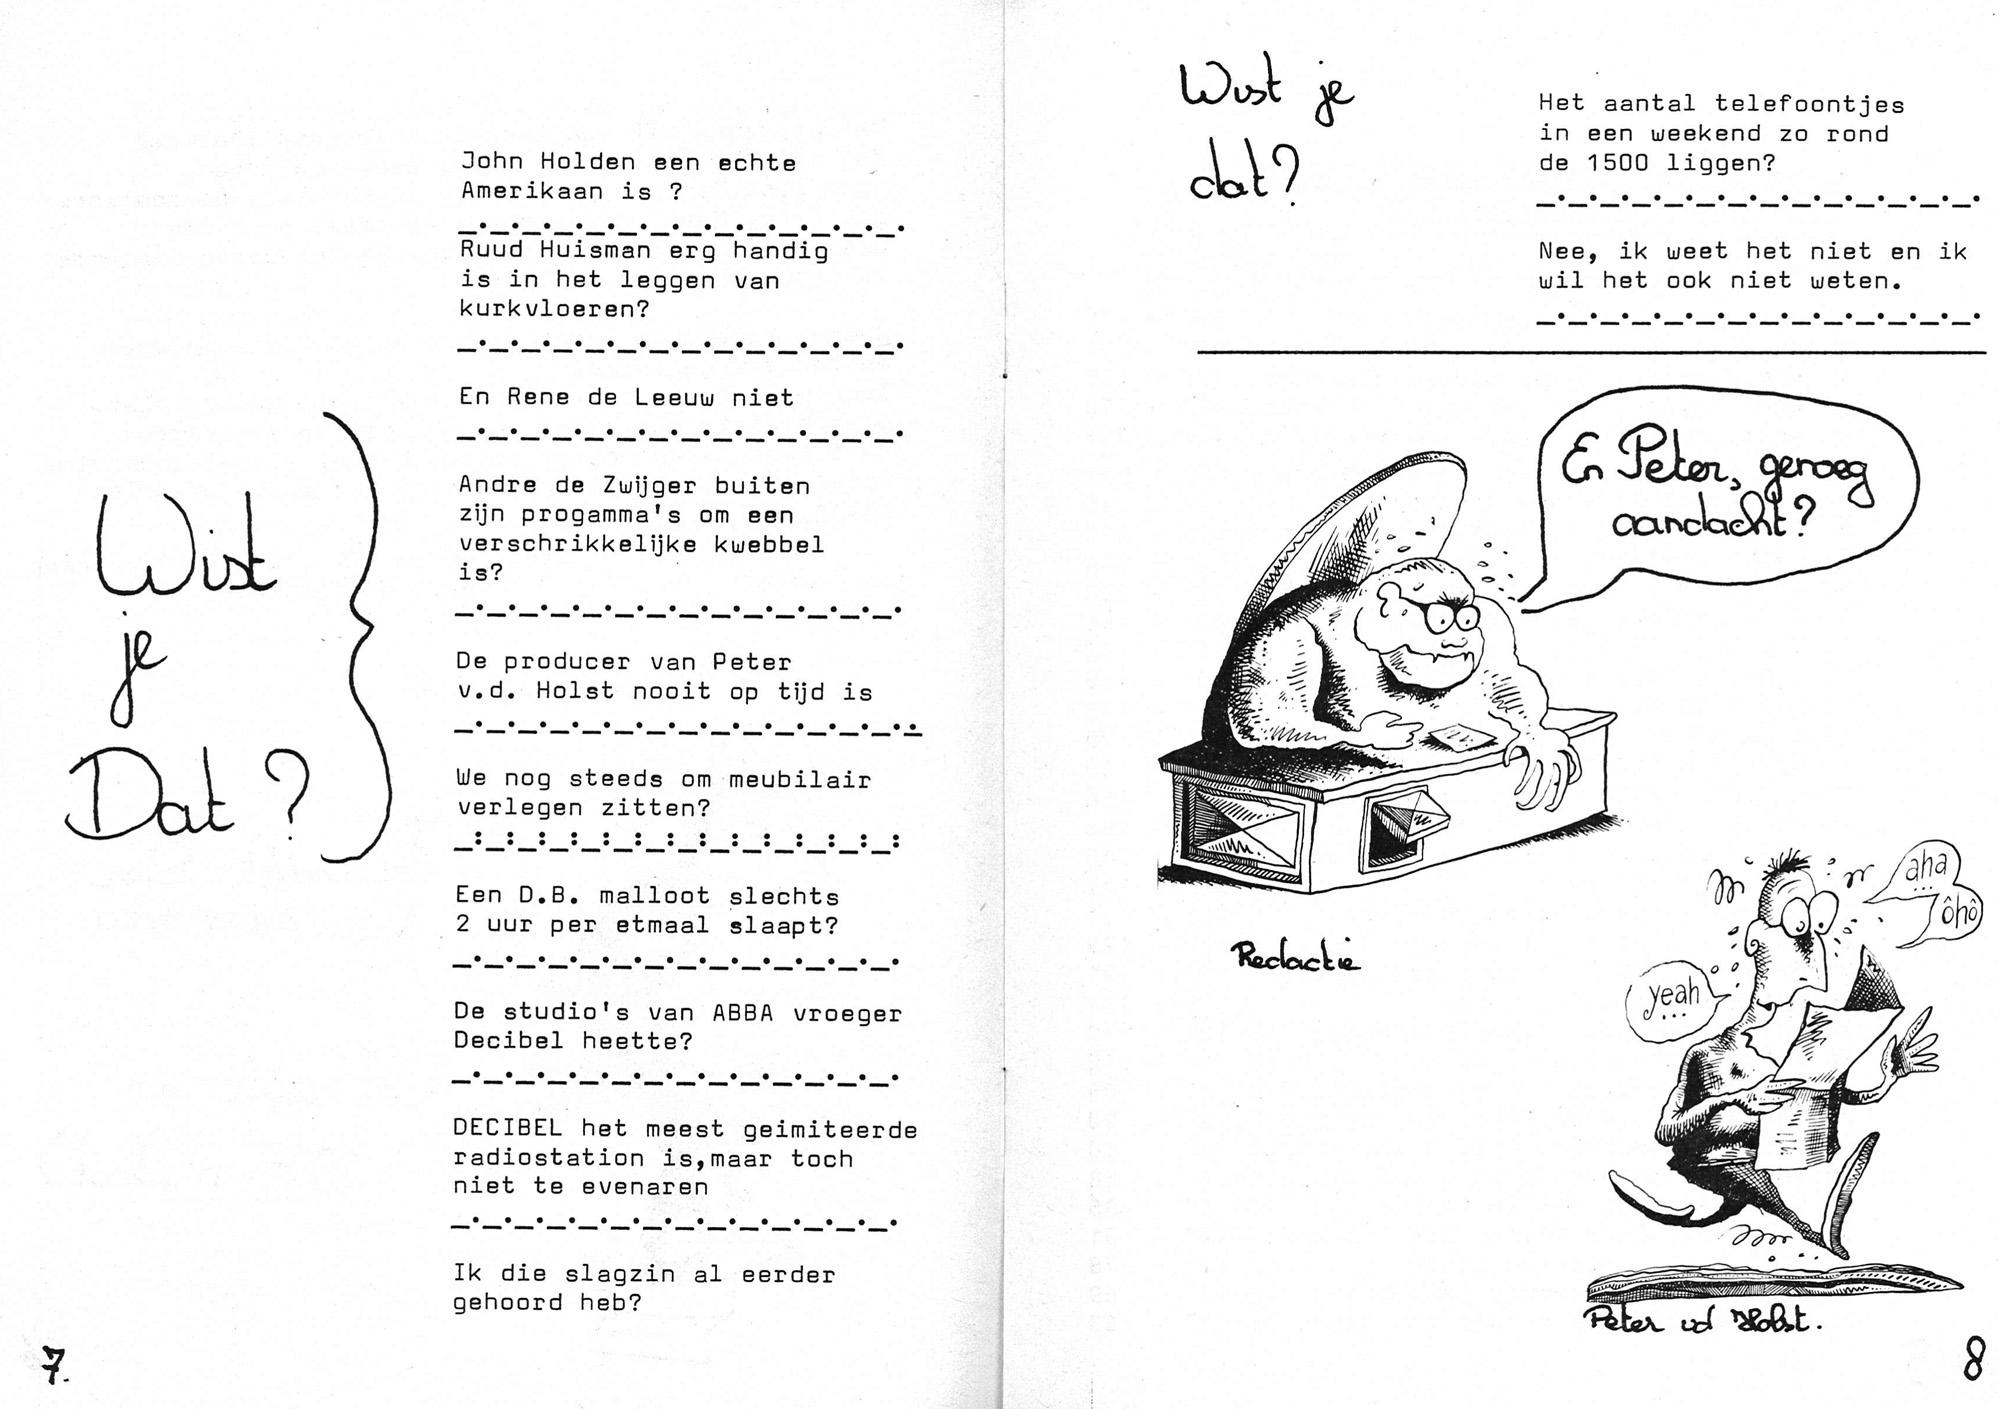 Wist
je
Dat?
John Holden een echte
Amerikaan is ?
Ruud Huisman erg handig
is in het leggen van
kurkvloeren?
En Rene de Leeuw niet
Andre de Zwijger buiten
zijn progamma's om een
verschrikkelijke kwebbel
is?
De producer van Peter
v.d. Holst nooit op tijd is
We nog steeds om meubilair
verlegen zitten?
Een D.B. malloot slechts
2 uur per etmaal slaapt?
De studio's van ABBA vroeger
Decibel heette?
DECIBEL het meest geimiteerde
radiostation is,maar toch
niet te evenaren
Ik die slagzin al eerder
gehoord heb?
7.
Wist je
dat?
Het aantal telefoontjes
in een weekend zo rond
de 1500 liggen?
Nee, ik weet het niet en ik
wil het ook niet weten.
En Peter, genoeg
aandacht?
Redactie
aha
...
ôhô
yeah
...
Peter vd Holst.
8